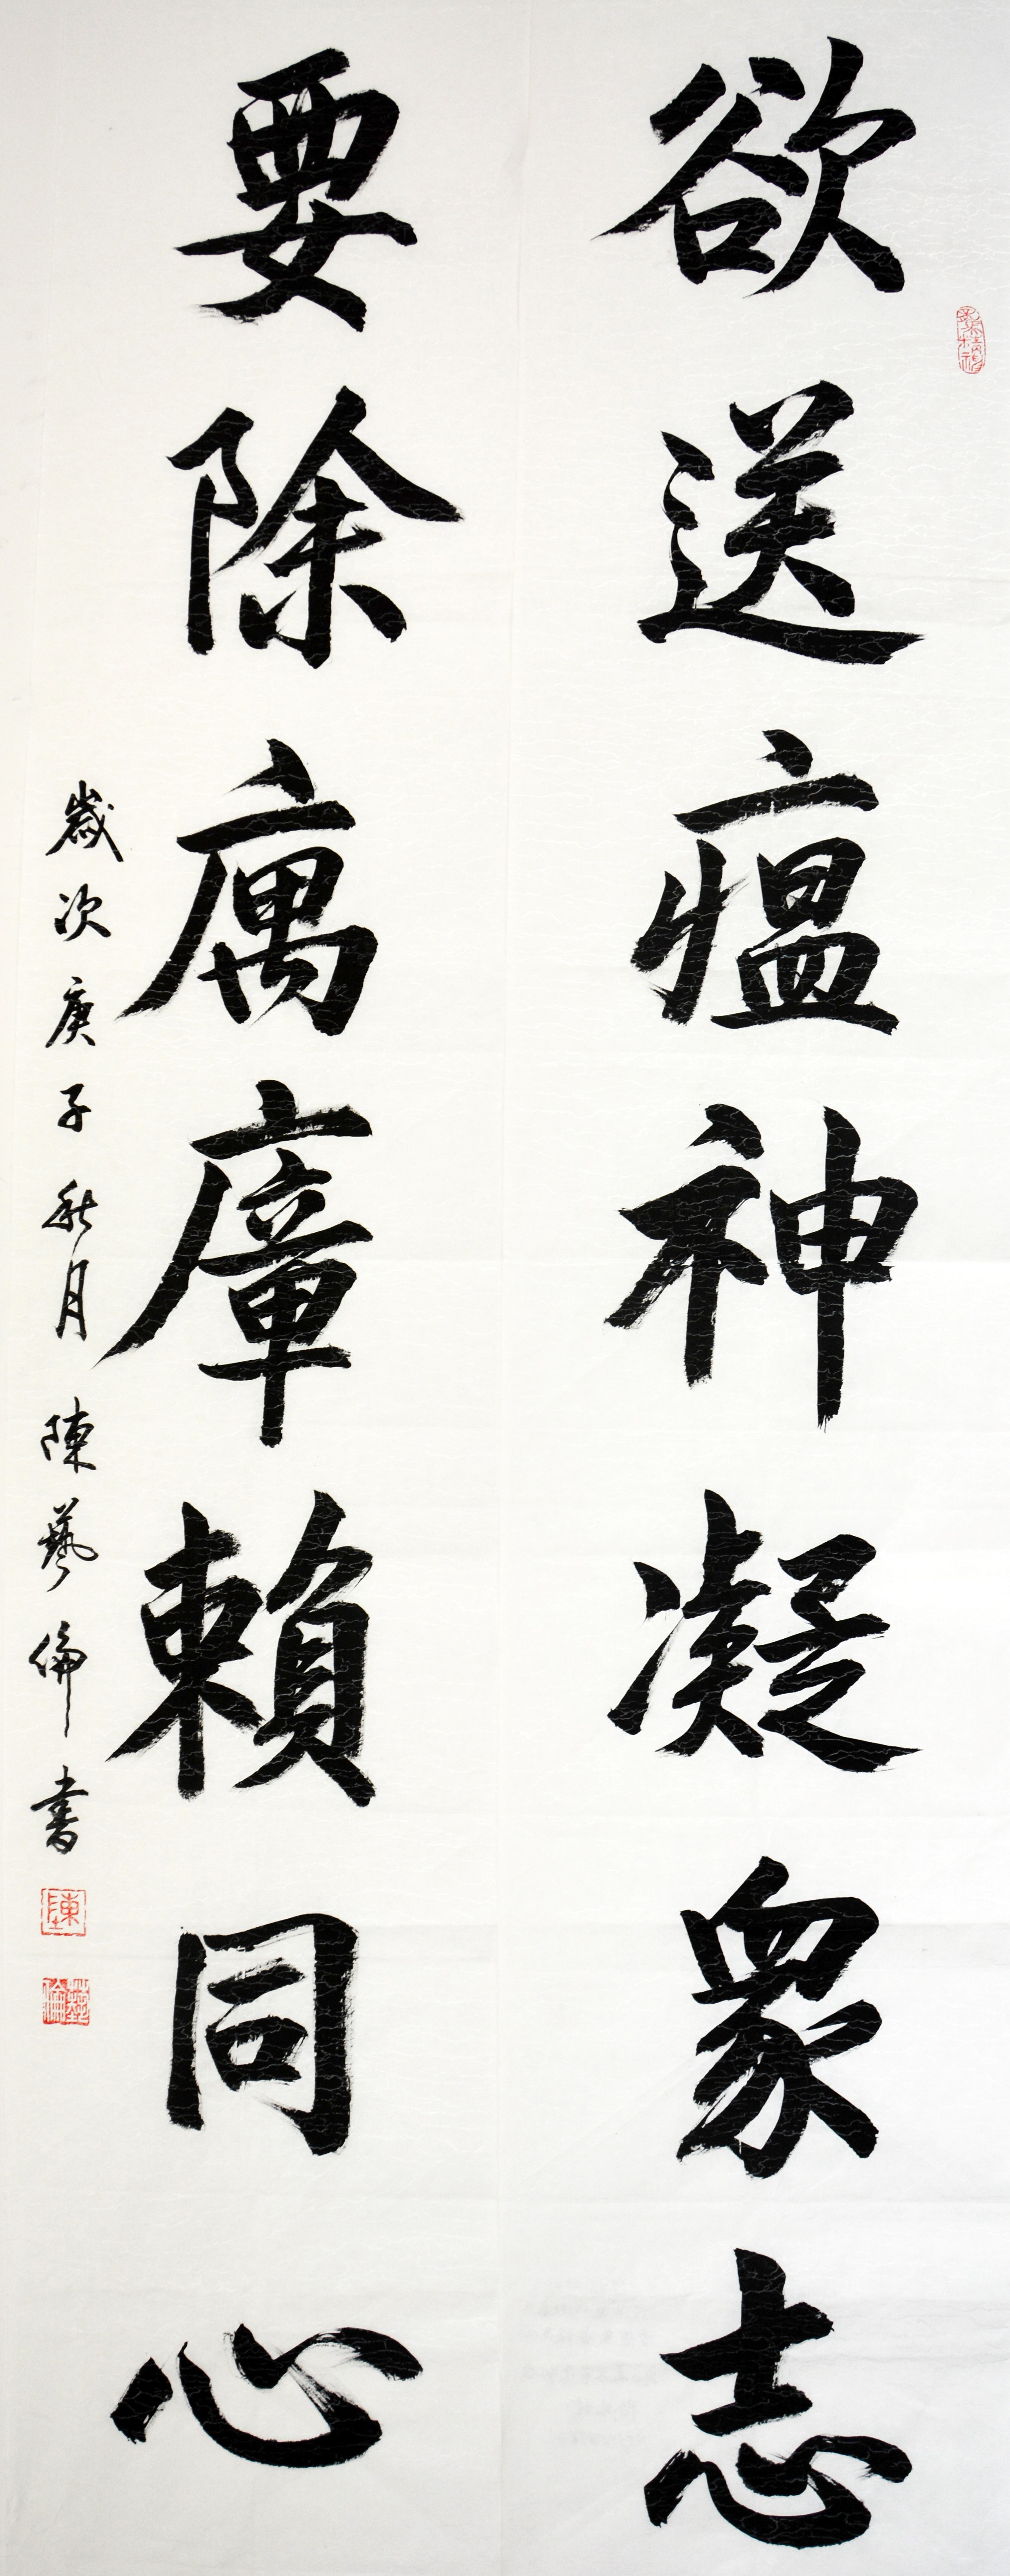 欲送瘟神凝衆志
要除厲瘴賴同心
歲次庚子秋月陳藝倫書
陳
藝倫